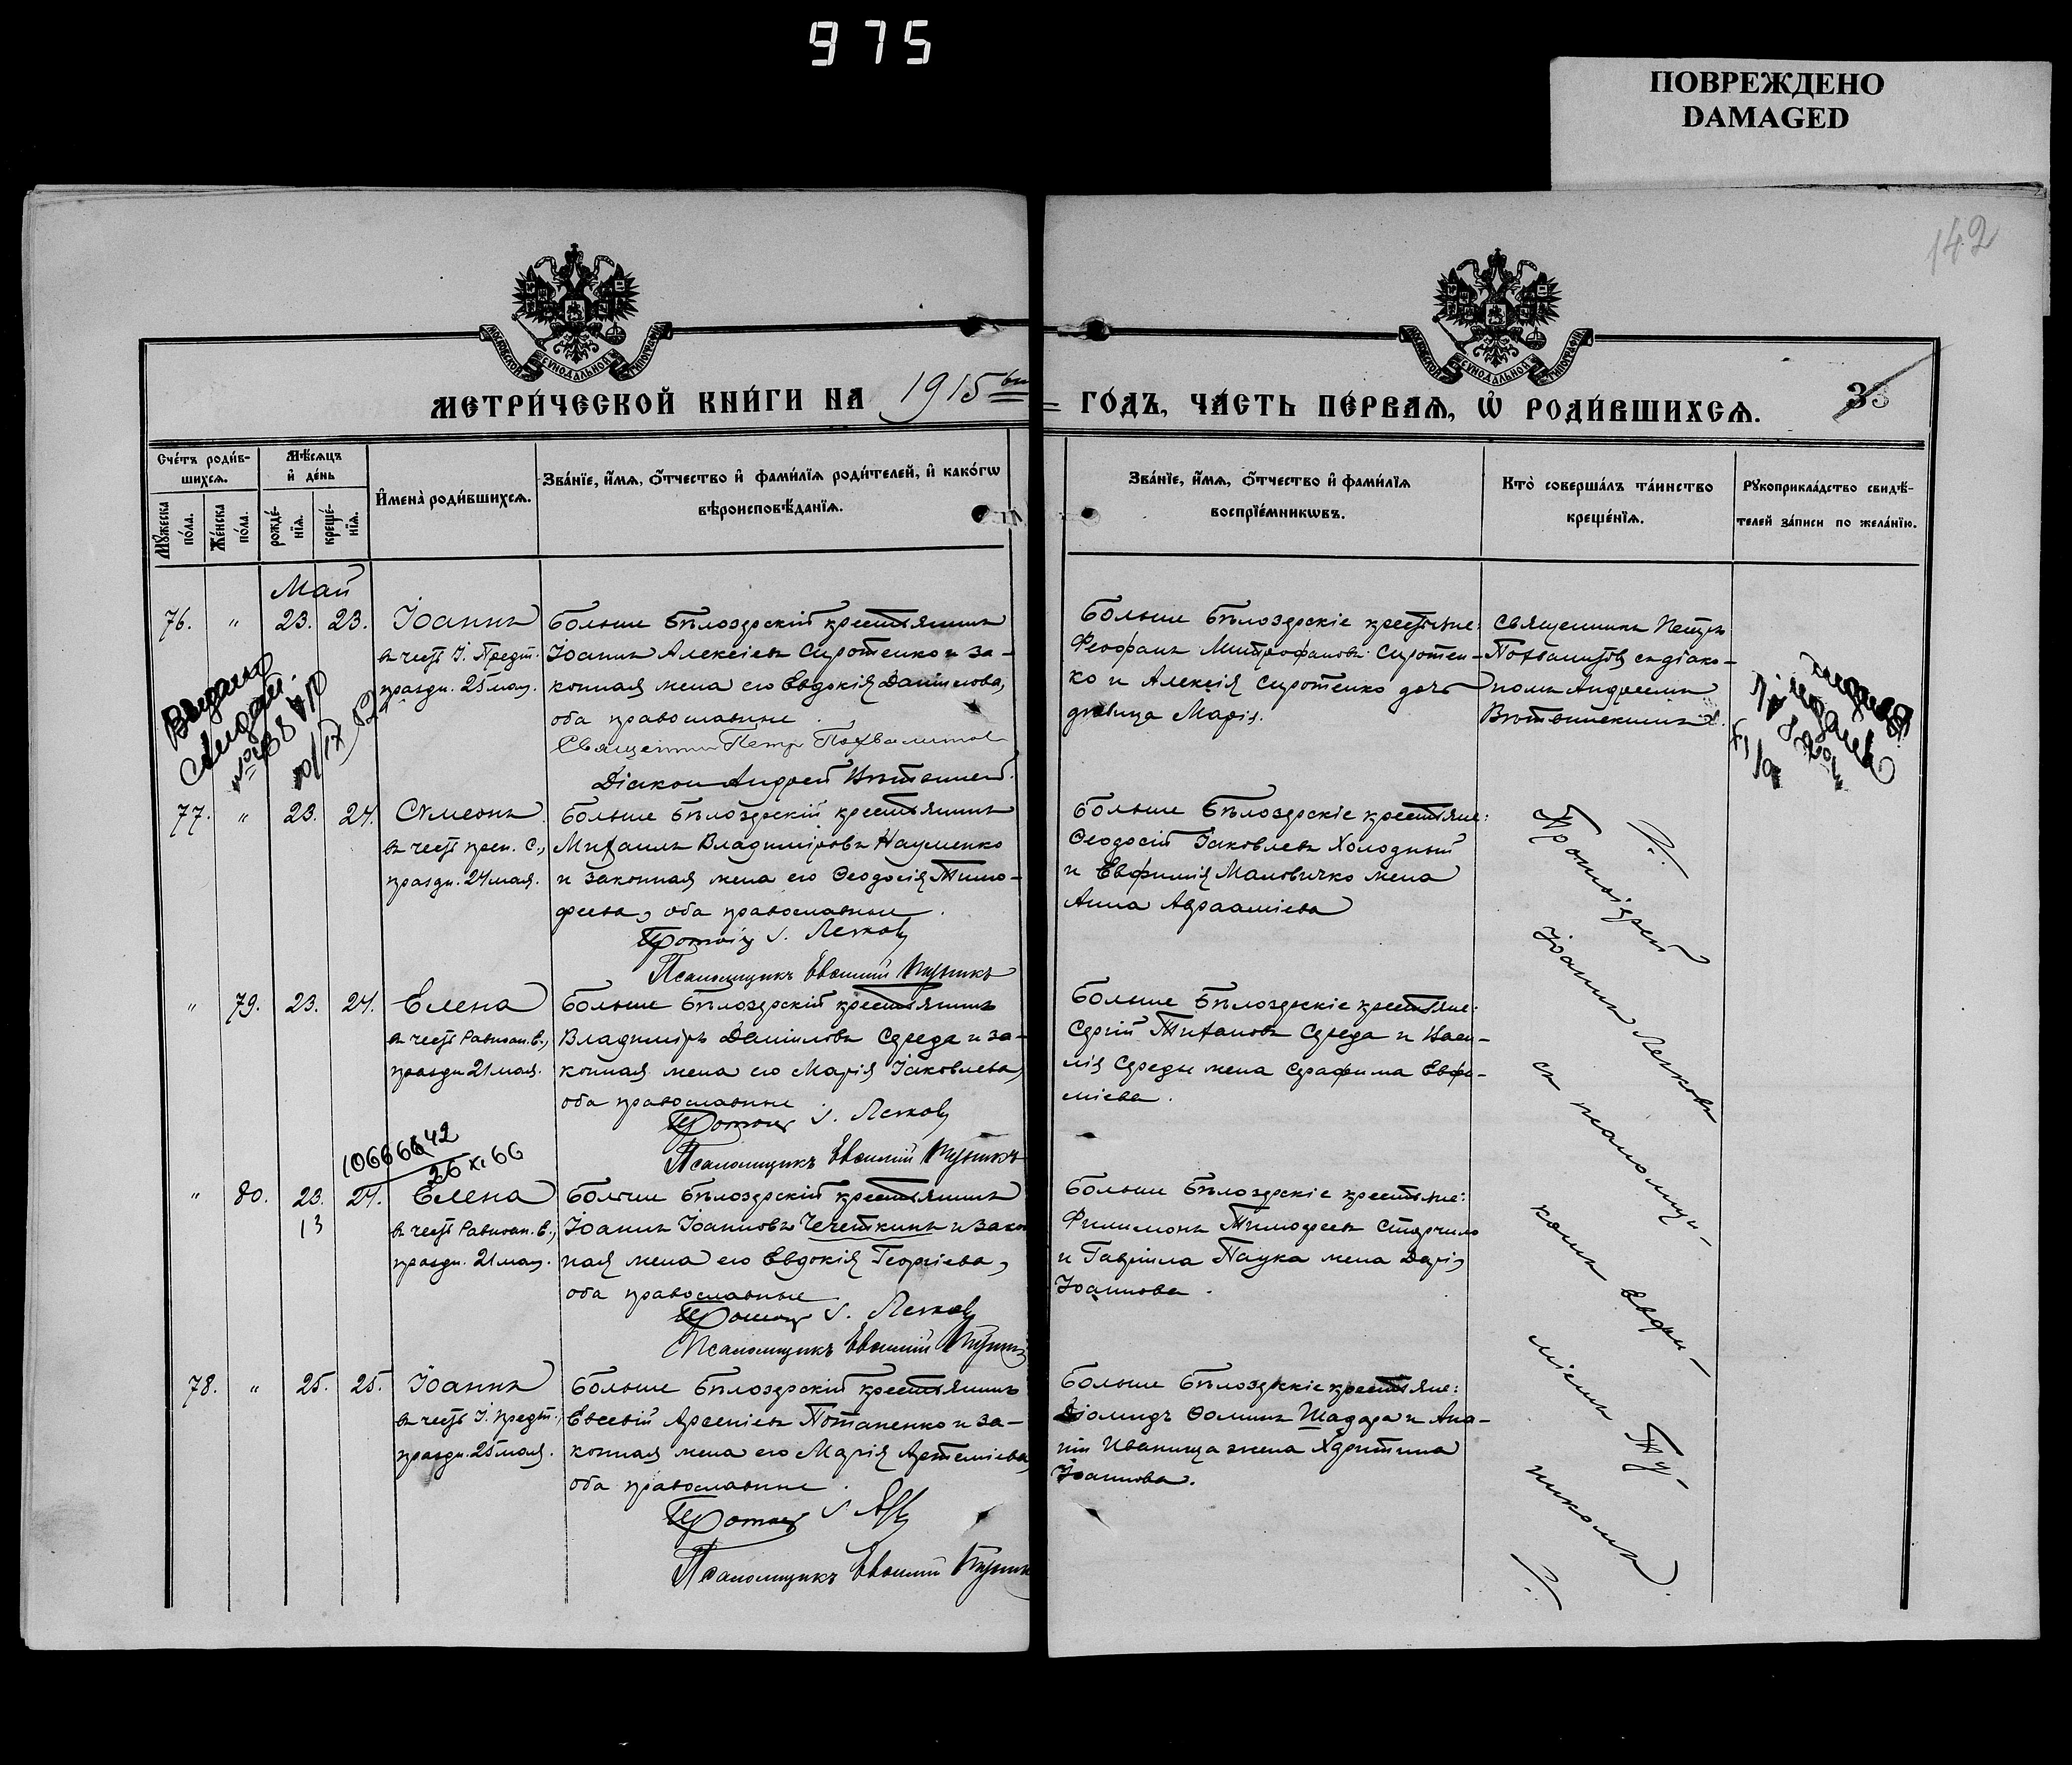 975
ПОВРЕЖДЕНО
DAMAGED
142
МОСКОВСКОЙ СѴНОДАЛЬНОЙ ТИПОГРАФІИ
МОСКОВСКОЙ СѴНОДАЛЬНОЙ ТИПОГРАФІИ
МЕТРИ́ЧЕСКОЙ КНИ́ГИ НА 1915
ГО́ДЪ, ЧА́СТЬ ПЕ́РВАѦ, Ѡ҆ РОДИ́ВШИХСѦ.
33
Сче́тъ роди́в-
шихсѧ.
Мꙋ́жеска по́ла.
Же́нска по́ла.
Мѣ́сѧцъ
и҆ де́нь
рожде́-
нїѧ.
креще́-
нїѧ.
И҆мена̀ роди́вшихсѧ.
Зва́нїе, и҆́мѧ, ѻ҆́тчество и҆ фами́лїѧ роди́телей, и҆ како́гѡ
вѣроисповѣ́данїѧ.
Зва́нїе, и҆́мѧ, ѻ҆́тчество и҆ фами́лїѧ
воспрїе́мникѡвъ.
Кто̀ соверша́лъ та́инство
креще́нїѧ.
Рꙋкоприкла́дство свидѣ́-
телей за́писи по жела́нїю.
Май
76. " 23. 23. Іоаннъ
въ честь І. Предт.
праздн. 25 мая.
Больше Бѣлозерскій крестьянинъ
Іоаннъ Алексіевъ Сиротенко и за-
конная жена его Евдокія Даниілова,
оба православные.
Священникъ Петръ Похвалитовъ
Діаконъ Андрей
Больше Бѣлозерскіе крестьяне:
Феофанъ Митрофановъ Сиротен-
ко и Алексія Сиротенко дочь
дѣвица Марія.
Священникъ Петръ
Похвалитовъ съ діако-
номъ Андреемъ
Выдано
77. " 23. 24. Сѵмеонъ
въ честь преп. С.,
праздн. 24 мая.
Больше Бѣлозерскій крестьянинъ
Михаилъ Владиміровъ Науменко
и законная жена его Ѳеодосія Тимо-
феева, оба православные.
І. Лежковъ
Псаломщикъ Евфимій
Больше Бѣлозерскіе крестьяне:
Ѳеодосій Іаковлевъ Холодный
и Евфимія Маловичко жена
Анна Авраамiева
Протоіерей
Іоаннъ Лежковъ
съ псаломщи-
комъ Евфи-
міемъ
" 79. 23. 24. Елена
въ честь Равноап. Е.,
праздн. 21 мая.
Больше Бѣлозерскій крестьянинъ
Владиміръ Даниіловъ Середа и за-
конная жена его Марія Іаковлева,
оба православные
І. Лежковъ
Псаломщикъ Евфимій
Больше Бѣлозерскіе крестьяне:
Сергій Титановъ Середа и Васи-
лія Середы жена Серафима Евфи-
міева.
26 XI 66
" 80. 23. 24. Елена
13
въ честь Равноап. Е.,
праздн. 21 мая.
Больше Бѣлозерскій крестьянинъ
Іоаннъ Іоанновъ Чечеткинъ и закон
ная жена его Евдокія Георгіева,
оба православные
І. Лежковъ
Псаломщикъ Евфимій
Больше Бѣлозерскіе крестьяне:
Филимонъ Тимофеевъ Старчило
и Гавріила Паука жена Дарія
Іоаннова.
78. " 25. 25. Іоаннъ
въ честь І. Предт.,
праздн. 25 мая.
Больше Бѣлозерскій крестьянинъ
Евсевій Арсеніевъ Потапенко и за-
конная жена его Марія Артеміева,
оба православные.
Псаломщикъ Евфимій
Больше Бѣлозерскіе крестьяне:
Діомидъ Ѳоминъ Шадара и Ана-
нія Иваница жена Харитина
Іоаннова.